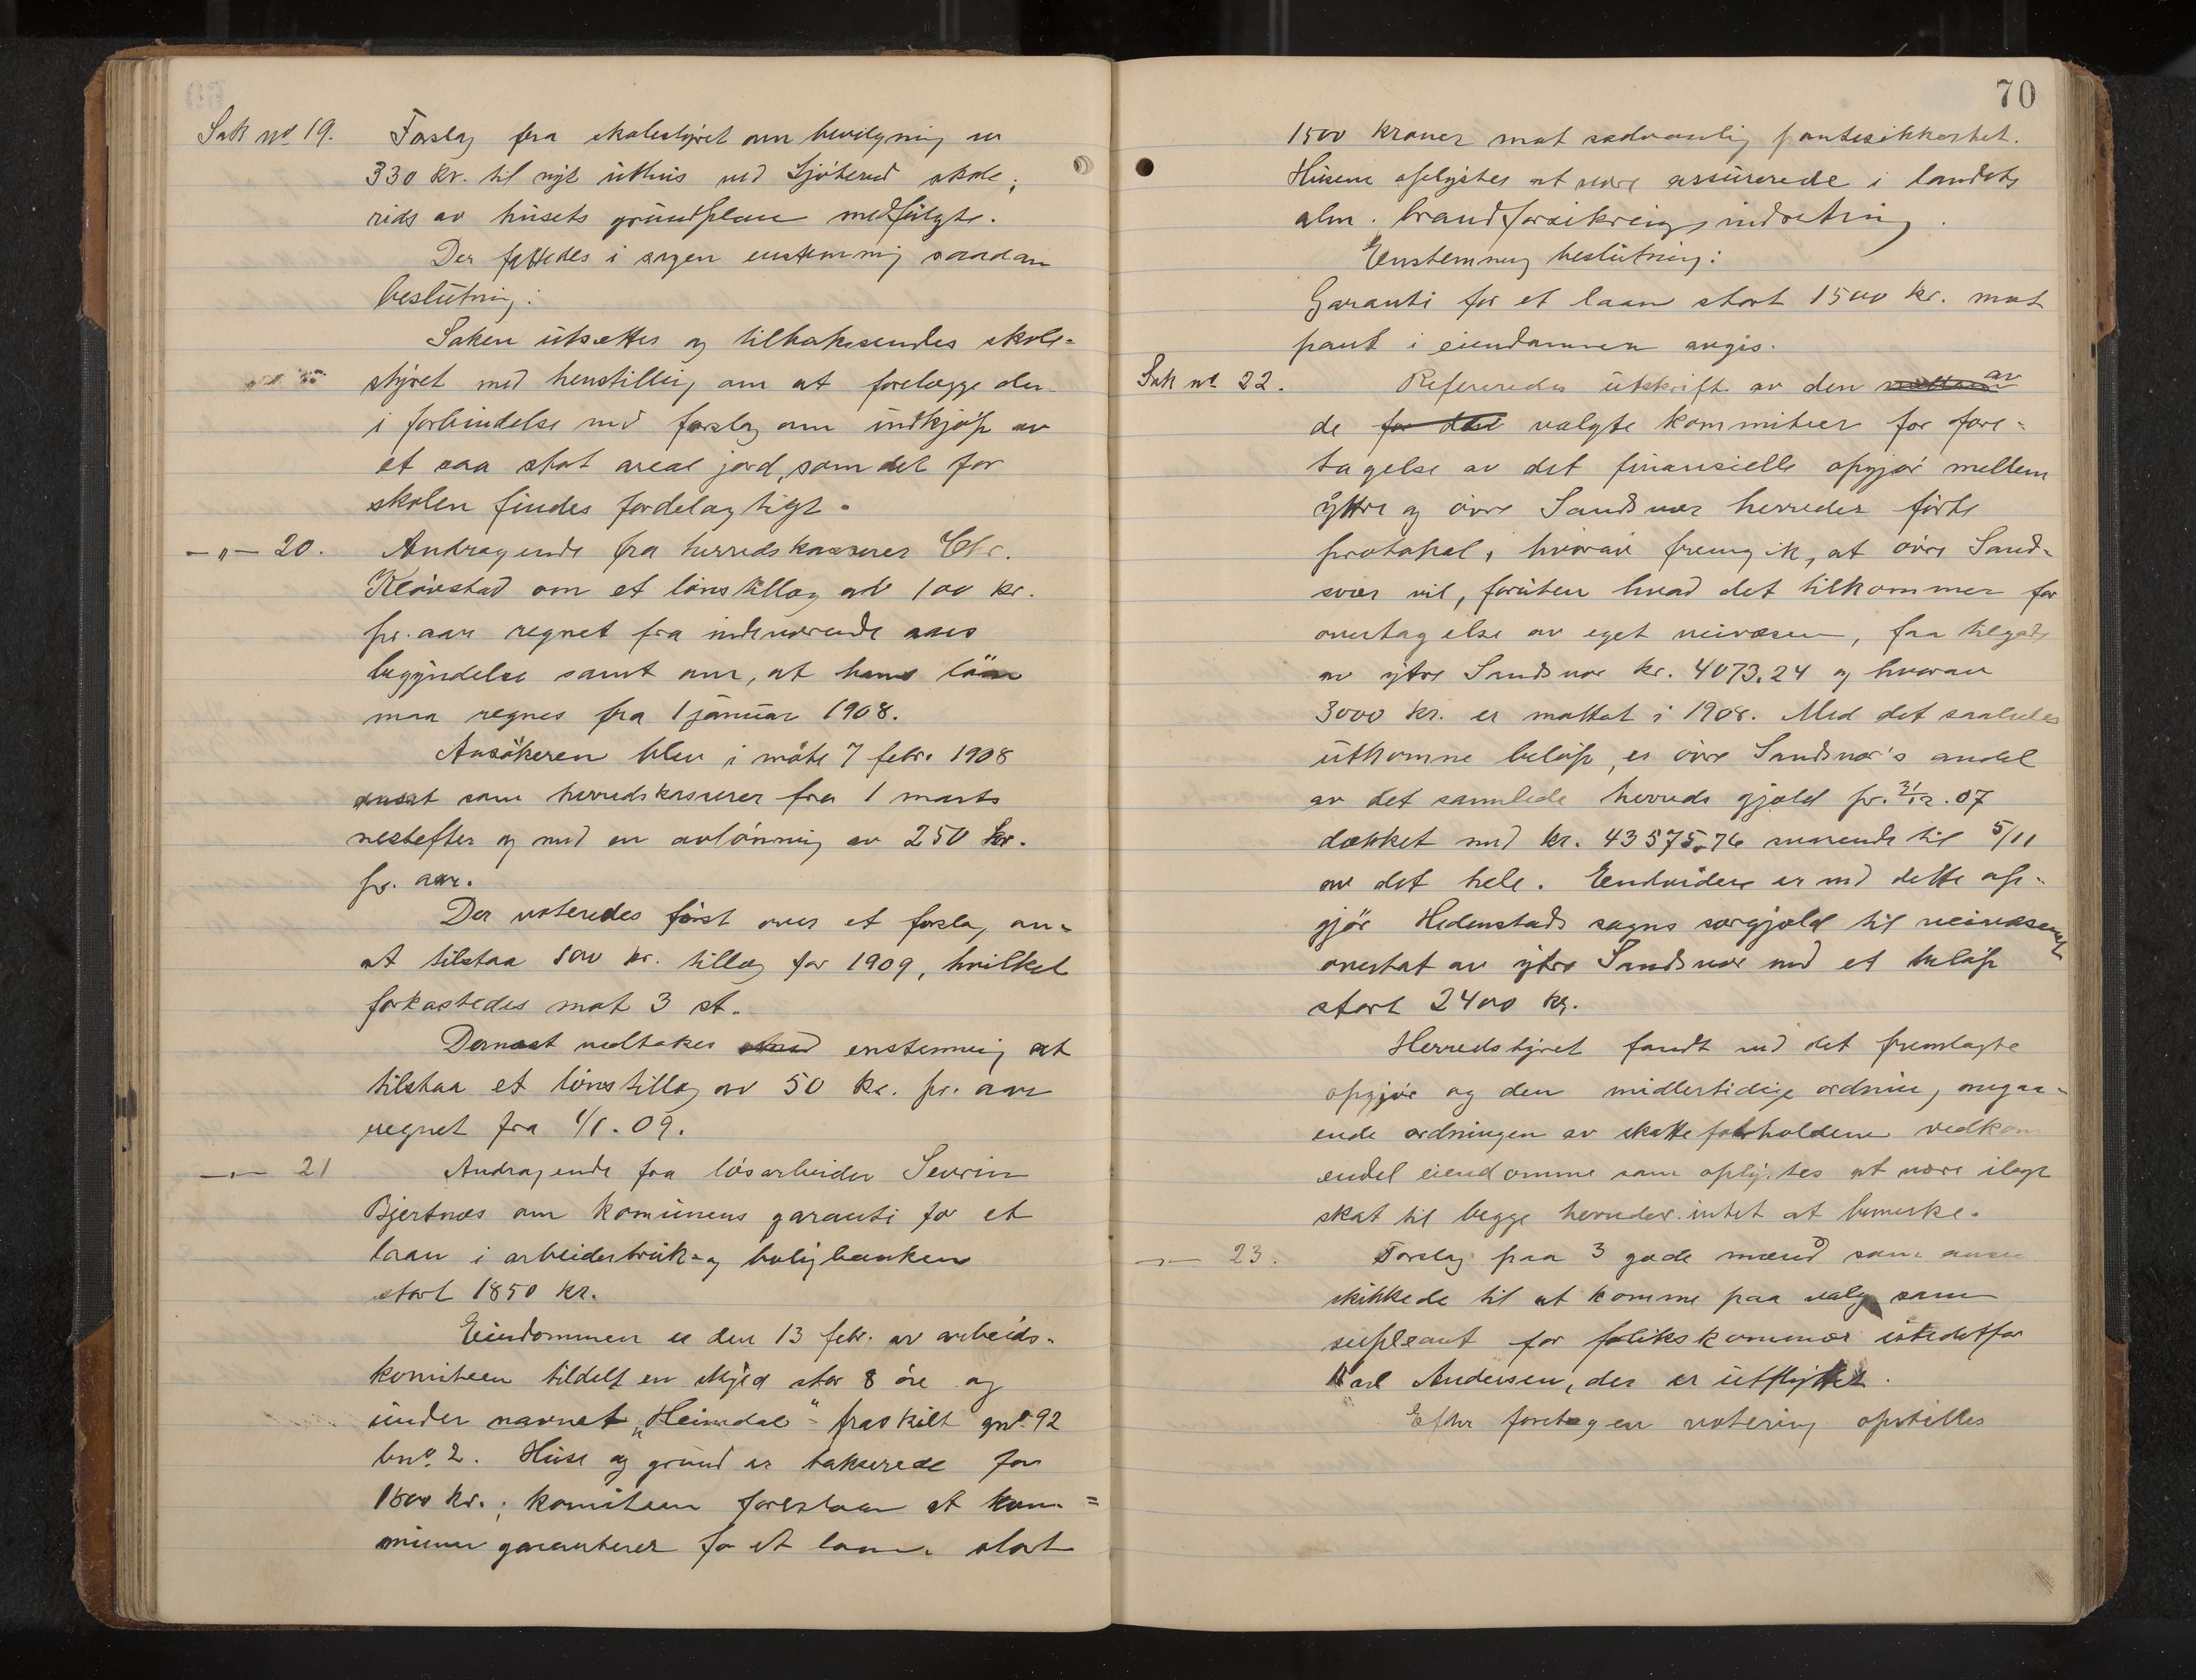 Sak nº 19. Forslag fra skolestyret om bevilgning av
330 kr. til nyt uthus ved Sjöterud skole;
rids av husets grundplan medfulgte.
Der fattedes i sagen enstemmig saadan
beslutning:
Saken utsættes og tilbakesendes skole-
styret med henstilling om at forelægge den
i forbindelse med forslag om indkjöp av
et saa stort areal jord, som det for
skolen findes fordelagtigt.
—„— 20. Andragende fra herredskasserer Chr.
Klövstad om et lönstillæg av 100 kr.
pr. aar regnet fra indeværende aars
begyndelse samt om, at hans lön
maa regnes fra 1 januar 1908.
Ansökeren blev i möte 7 febr. 1908
ansat som herredskasserer fra 1 marts
nestefter og med en avlönning av 250 kr.
pr. aar.
Der voteredes först over et forslag om
at tilstaa 100 kr. tillæg for 1909, hvilket
forkastedes mot 3 st.
Dernæst vedtakes enstemmig at
tilstaa et lönstillæg av 50 kr. pr. aar
regnet fra 1/1. 09.
—„— 21 Andragende fra lösarbeider Sevrin
Bjertnæs om komunens garanti for et
laan i arbeiderbruk- og boligbanken
stort 1850 kr.
Eiendommen er den 13 febr. av arbeids-
komiteen tildelt en skyld stor 8 öre og
under navnet „Heimdal" fraskilt gnº 92
bnº 2. Huse og grund er takserede for
1800 kr.; komiteen foreslaar at kom=
munen garanterer for et laan stort
70
1500 kroner mot sedvanlig pantesikkerhet.
Husene oplystes at være assurerede i landets
alm. brandforsikringsindretning.
Enstemmig beslutning:
Garanti for et laan stort 1500 kr. mot
pant i eiendommen avgis.
Sak nº 22. Refereredes utskrift av den av
de for den valgte kommiteer for fore-
tagelse av det finansielle opgjör mellem
ytre og övre Sandsvær herreder förte
protokol, hvorav fremgik, at övre Sand-
svær vil, foruten hvad det tilkommer for
overtagelse av eget veivæsen, faa tilgode
av ytre Sandsvær kr. 4073.24 og hvorav
3000 kr. er mottat i 1908. Med det saaledes
utkomne belöp, er övre Sandsvær's andel
av det samlede herreds gjæld pr. 31/12. 07
dækket med kr. 43575.76 svarende til 5/11
av det hele. Endvidere er ved dette op-
gjör Hedenstads sogns særgjæld til veivæsenet
overtat av ytre Sandsvær med et belöp
stort 2400 kr.
Herredstyret fandt ved det fremlagte
opgjör og den midlertidige ordning, angaa-
ende ordningen av skatteforholdene vedkom
endel eiendomme som oplystes at være ilagt
skat til begge herreder intet at bemerke.
—„— 23. Forslag paa 3 gode mænd som ansees
skikkede til at komme paa valg som
supleant for forlikskommisær istedetfor
Karl Andersen, der er utflyttet.
Efter foretagen votering opstilles